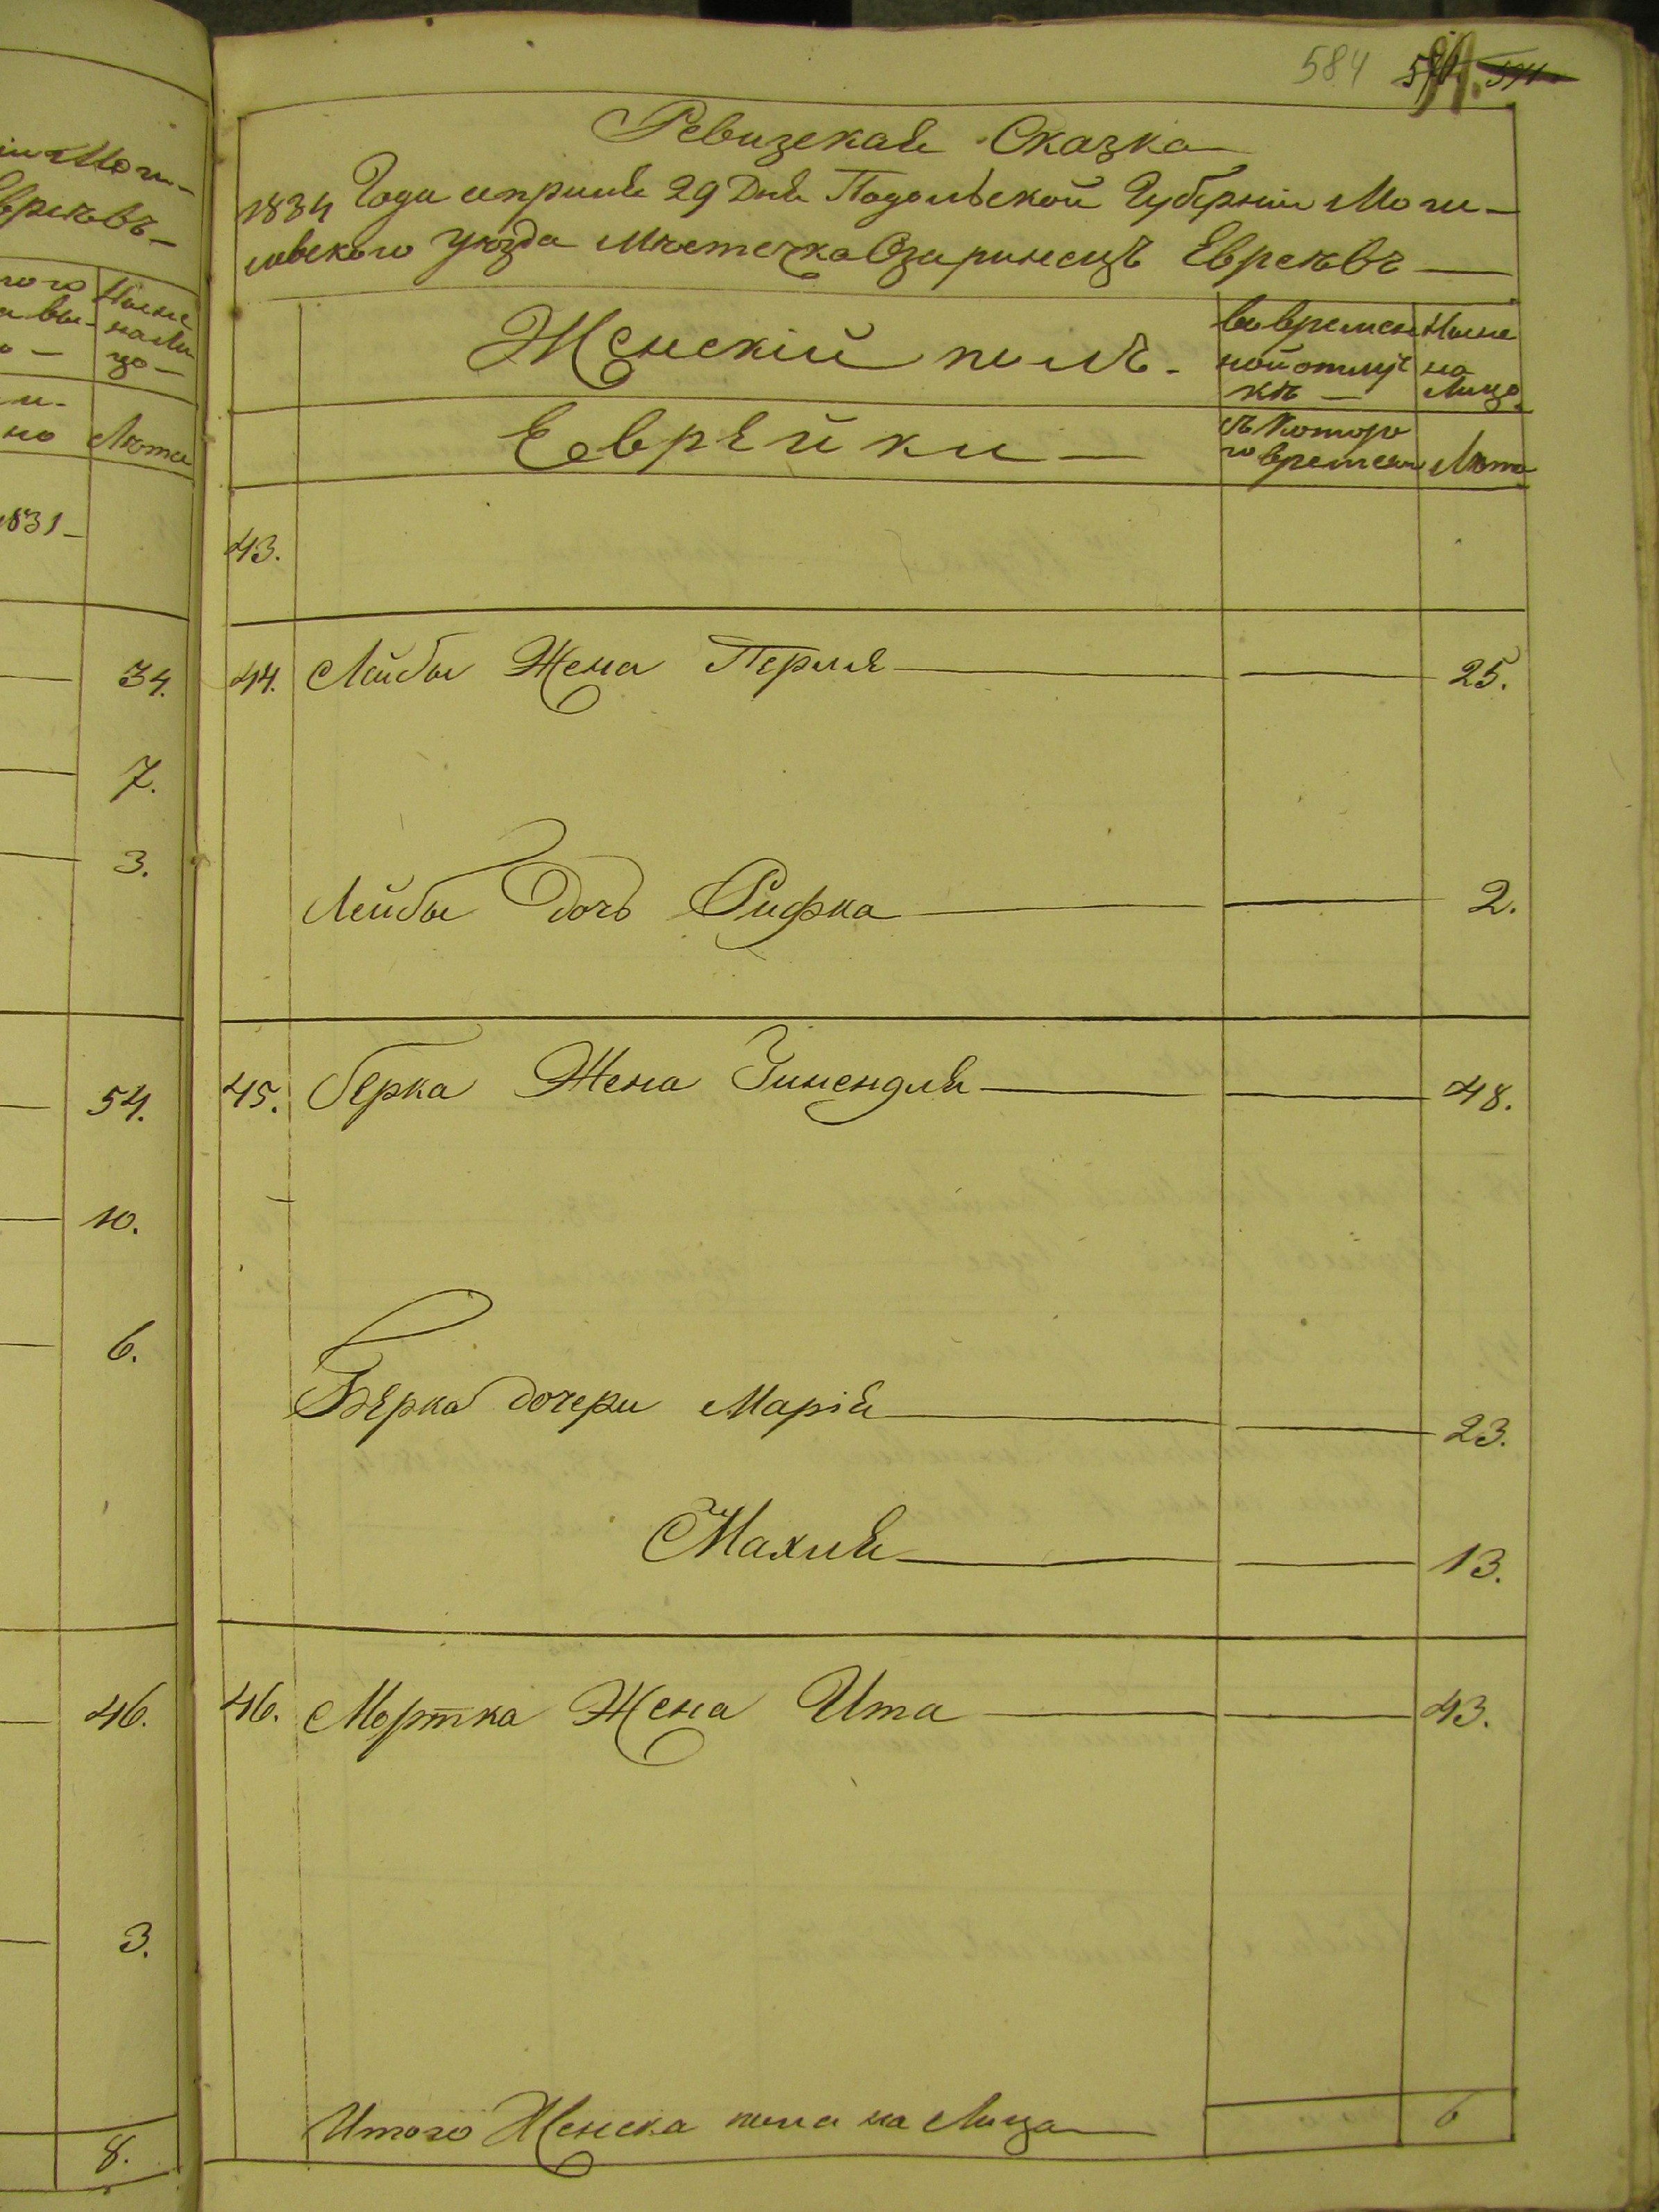 584
Ревизская Сказка
1834 Года априля 29 Дня Подольской Губерніи Моги-
левского уезда Местечка Озаринецъ Евреевъ —
Женскій полъ.
во времен
ной отлуч
ке —
Ныне
на
Лицо
Еврейки —
съ Которо
го времени
Лета
43.
44. Лейбы Жена Перля — — 25.
Лейбы дочь Рифка — — 2.
45. берка Жена Зинендля — — 48.
Берка дочери Марія — — 23.
Махля — — 13.
46. Мортка Жена Ита — — 43.
Итого Женска пола на Лицо — 6
Моги-
Евреевъ —
Ныне
на Ли
цо —
Лета
1831 —
— 34.
— 7.
— 3.
— 54.
— 10.
— 6.
— 46.
— 3.
8.